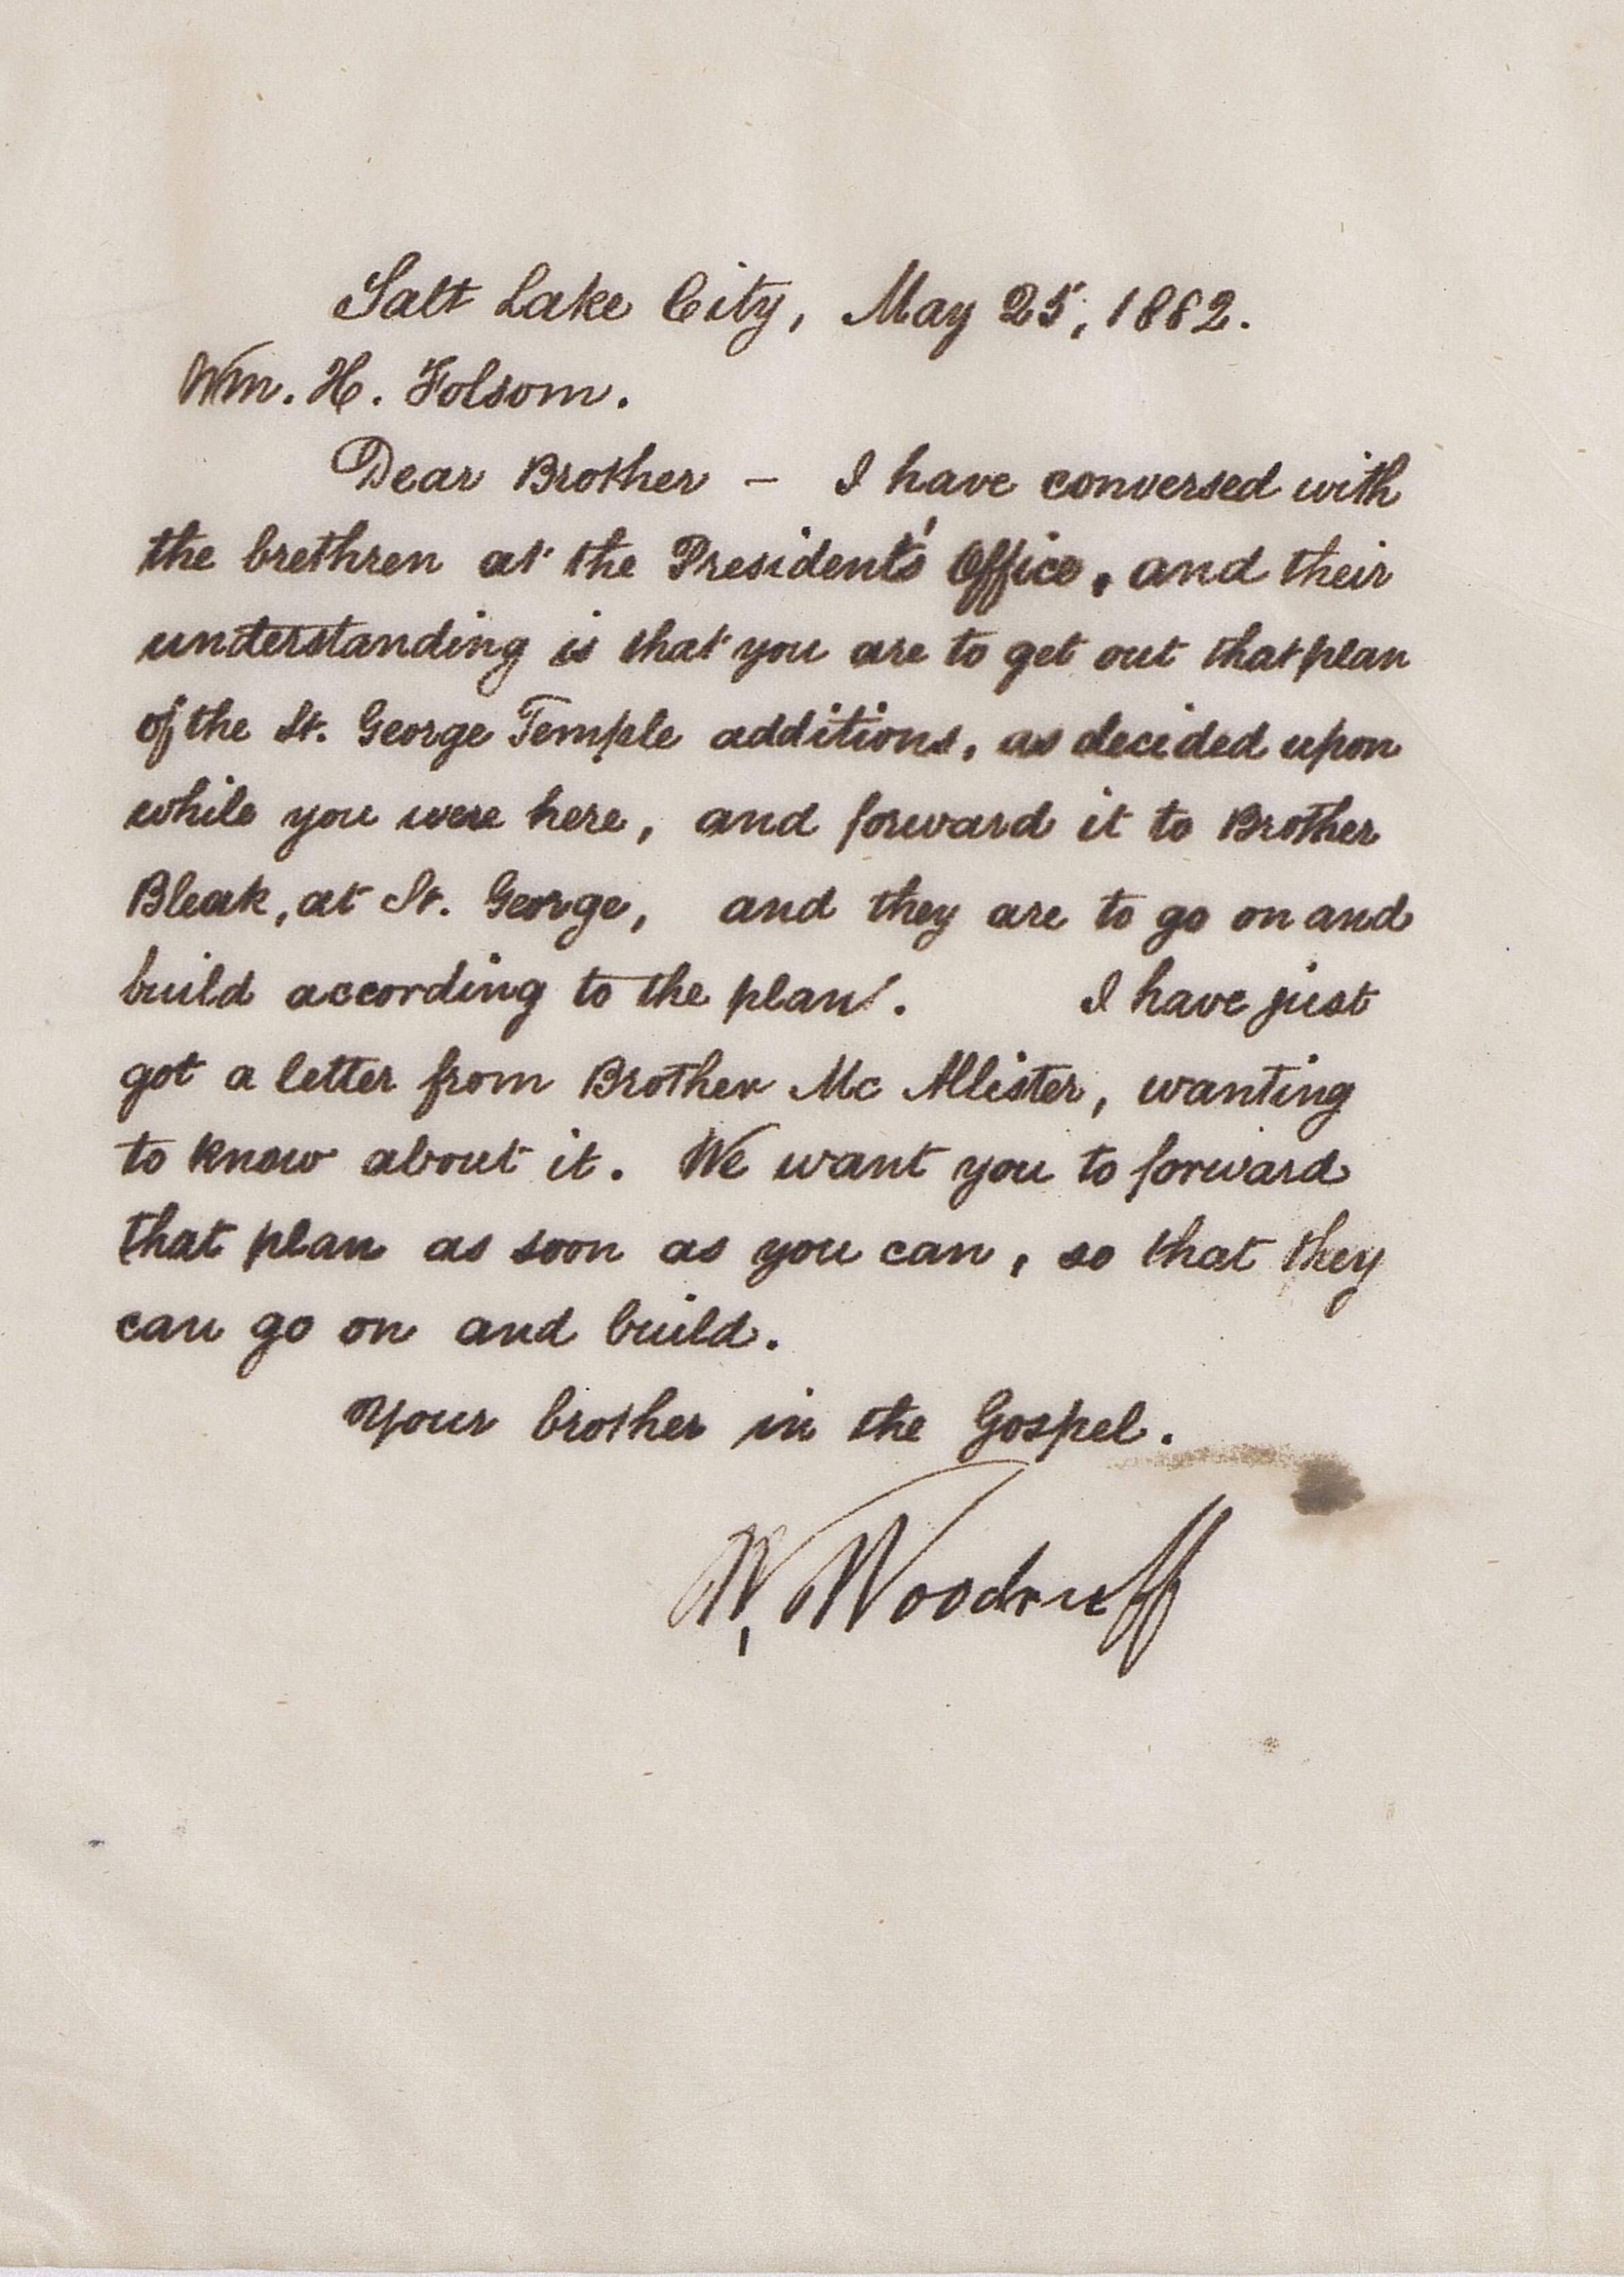 Salt Lake City, May 25, 1882.
Wm. H. Folsom.
Dear Brother – I have conversed with
the brethren at the President's Office, and their
understanding is that you are to get out that plan
of the St. George Temple additions, as decided upon
while you were here, and forward it to Brother
Bleak, at St. George, and they are to go on and
build according to the plan. I have just
got a letter from Brother Mc Allister, wanting
to know about it. We want you to forward
that plan as soon as you can, so that they
can go on and build.
Your brother in the Gospel.
W. Woodruff